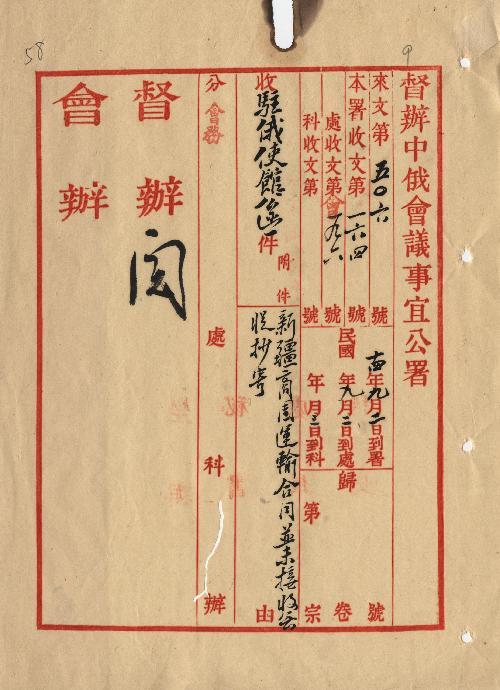 58
9
督辦中俄會議事宜公署
來文第五〇六號
本署收文第一六四號
處收文第會一九六號
科收文第號
年九月二日到署
民國年九月二日到處
年月三日到科
歸第宗卷號
收駐俄使館函件
附件
新疆商團運輸合同並未接收云
從抄寄
由
分會務處科辦
督辦閱
會辦